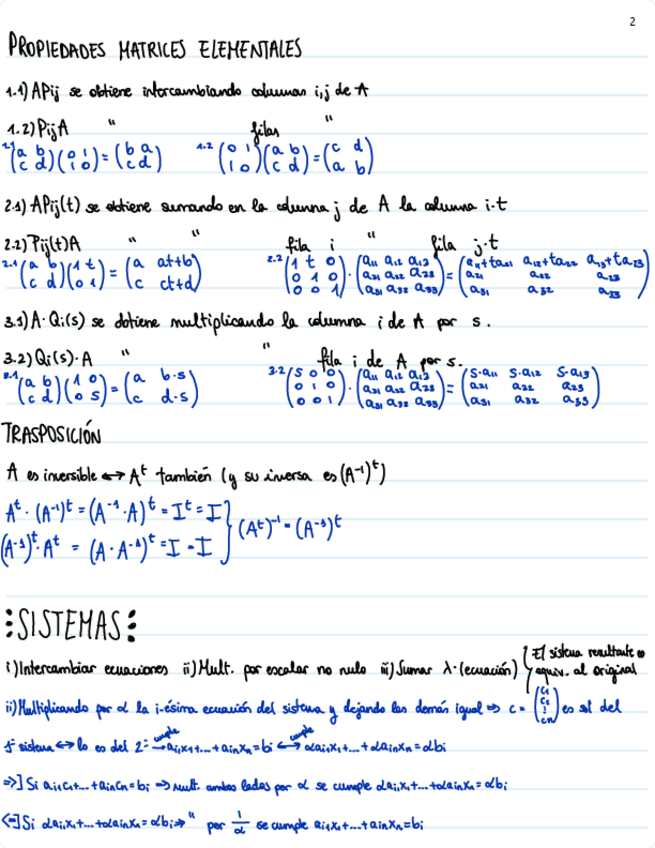 2
PROPIEDADES MATRICES ELEMENTALES
1.1) APij se obtiene intercambiando columnas i,j de A
1.2) PijA " filas "
1.1 (a b; c d)(0 1; 1 0) = (b a; c d) 1.2 (0 1; 1 0)(a b; c d) = (c d; a b)
2.1) APij(t) se obtiene sumando en la columna j de A la columna i·t
2.2) Pij(t)A " " fila i " fila j·t
2.1 (a b; c d)(1 t; 0 1) = (a at+b; c ct+d) 2.2 (1 t 0; 0 1 0; 0 0 1)·(a11 a12 a13; a21 a22 a23; a31 a32 a33) = (a11+ta21 a12+ta22 a13+ta23; a21 a22 a23; a31 a32 a33)
3.1) A·Qi(s) se obtiene multiplicando la columna i de A por s.
3.2) Qi(s)·A " " fila i de A por s.
3.1 (a b; c d)(1 0; 0 s) = (a b·s; c d·s) 3.2 (s 0 0; 0 1 0; 0 0 1)·(a11 a12 a13; a21 a22 a23; a31 a32 a33) = (s·a11 s·a12 s·a13; a21 a22 a23; a31 a32 a33)
TRASPOSICIÓN
A es inversible ↔ Aᵗ también (y su inversa es (A⁻¹)ᵗ)
Aᵗ·(A⁻¹)ᵗ = (A⁻¹·A)ᵗ = Iᵗ = I
(A⁻¹)ᵗ·Aᵗ = (A·A⁻¹)ᵗ = I = I } (Aᵗ)⁻¹ = (A⁻¹)ᵗ
SISTEMAS:
i) Intercambiar ecuaciones ii) Mult. por escalar no nulo iii) Sumar λ·(ecuación) } El sistema resultante es equiv. al original
ii) Multiplicando por α la i-ésima ecuación del sistema y dejando las demás igual ⇒ c = (c1 c2 ⋮ cn) es sol del
1º sistema ↔ lo es del 2º → cumple ai1x1+...+ainxn=bi ↔ cumple αai1x1+...+αainxn=αbi
⇒] Si ai1c1+...+aincn=bi ⇒ mult. ambos lados por α se cumple αai1x1+...+αainxn=αbi
⇐] Si αai1x1+...+αainxn=αbi ⇒ " por 1/α se cumple ai1x1+...+ainxn=bi